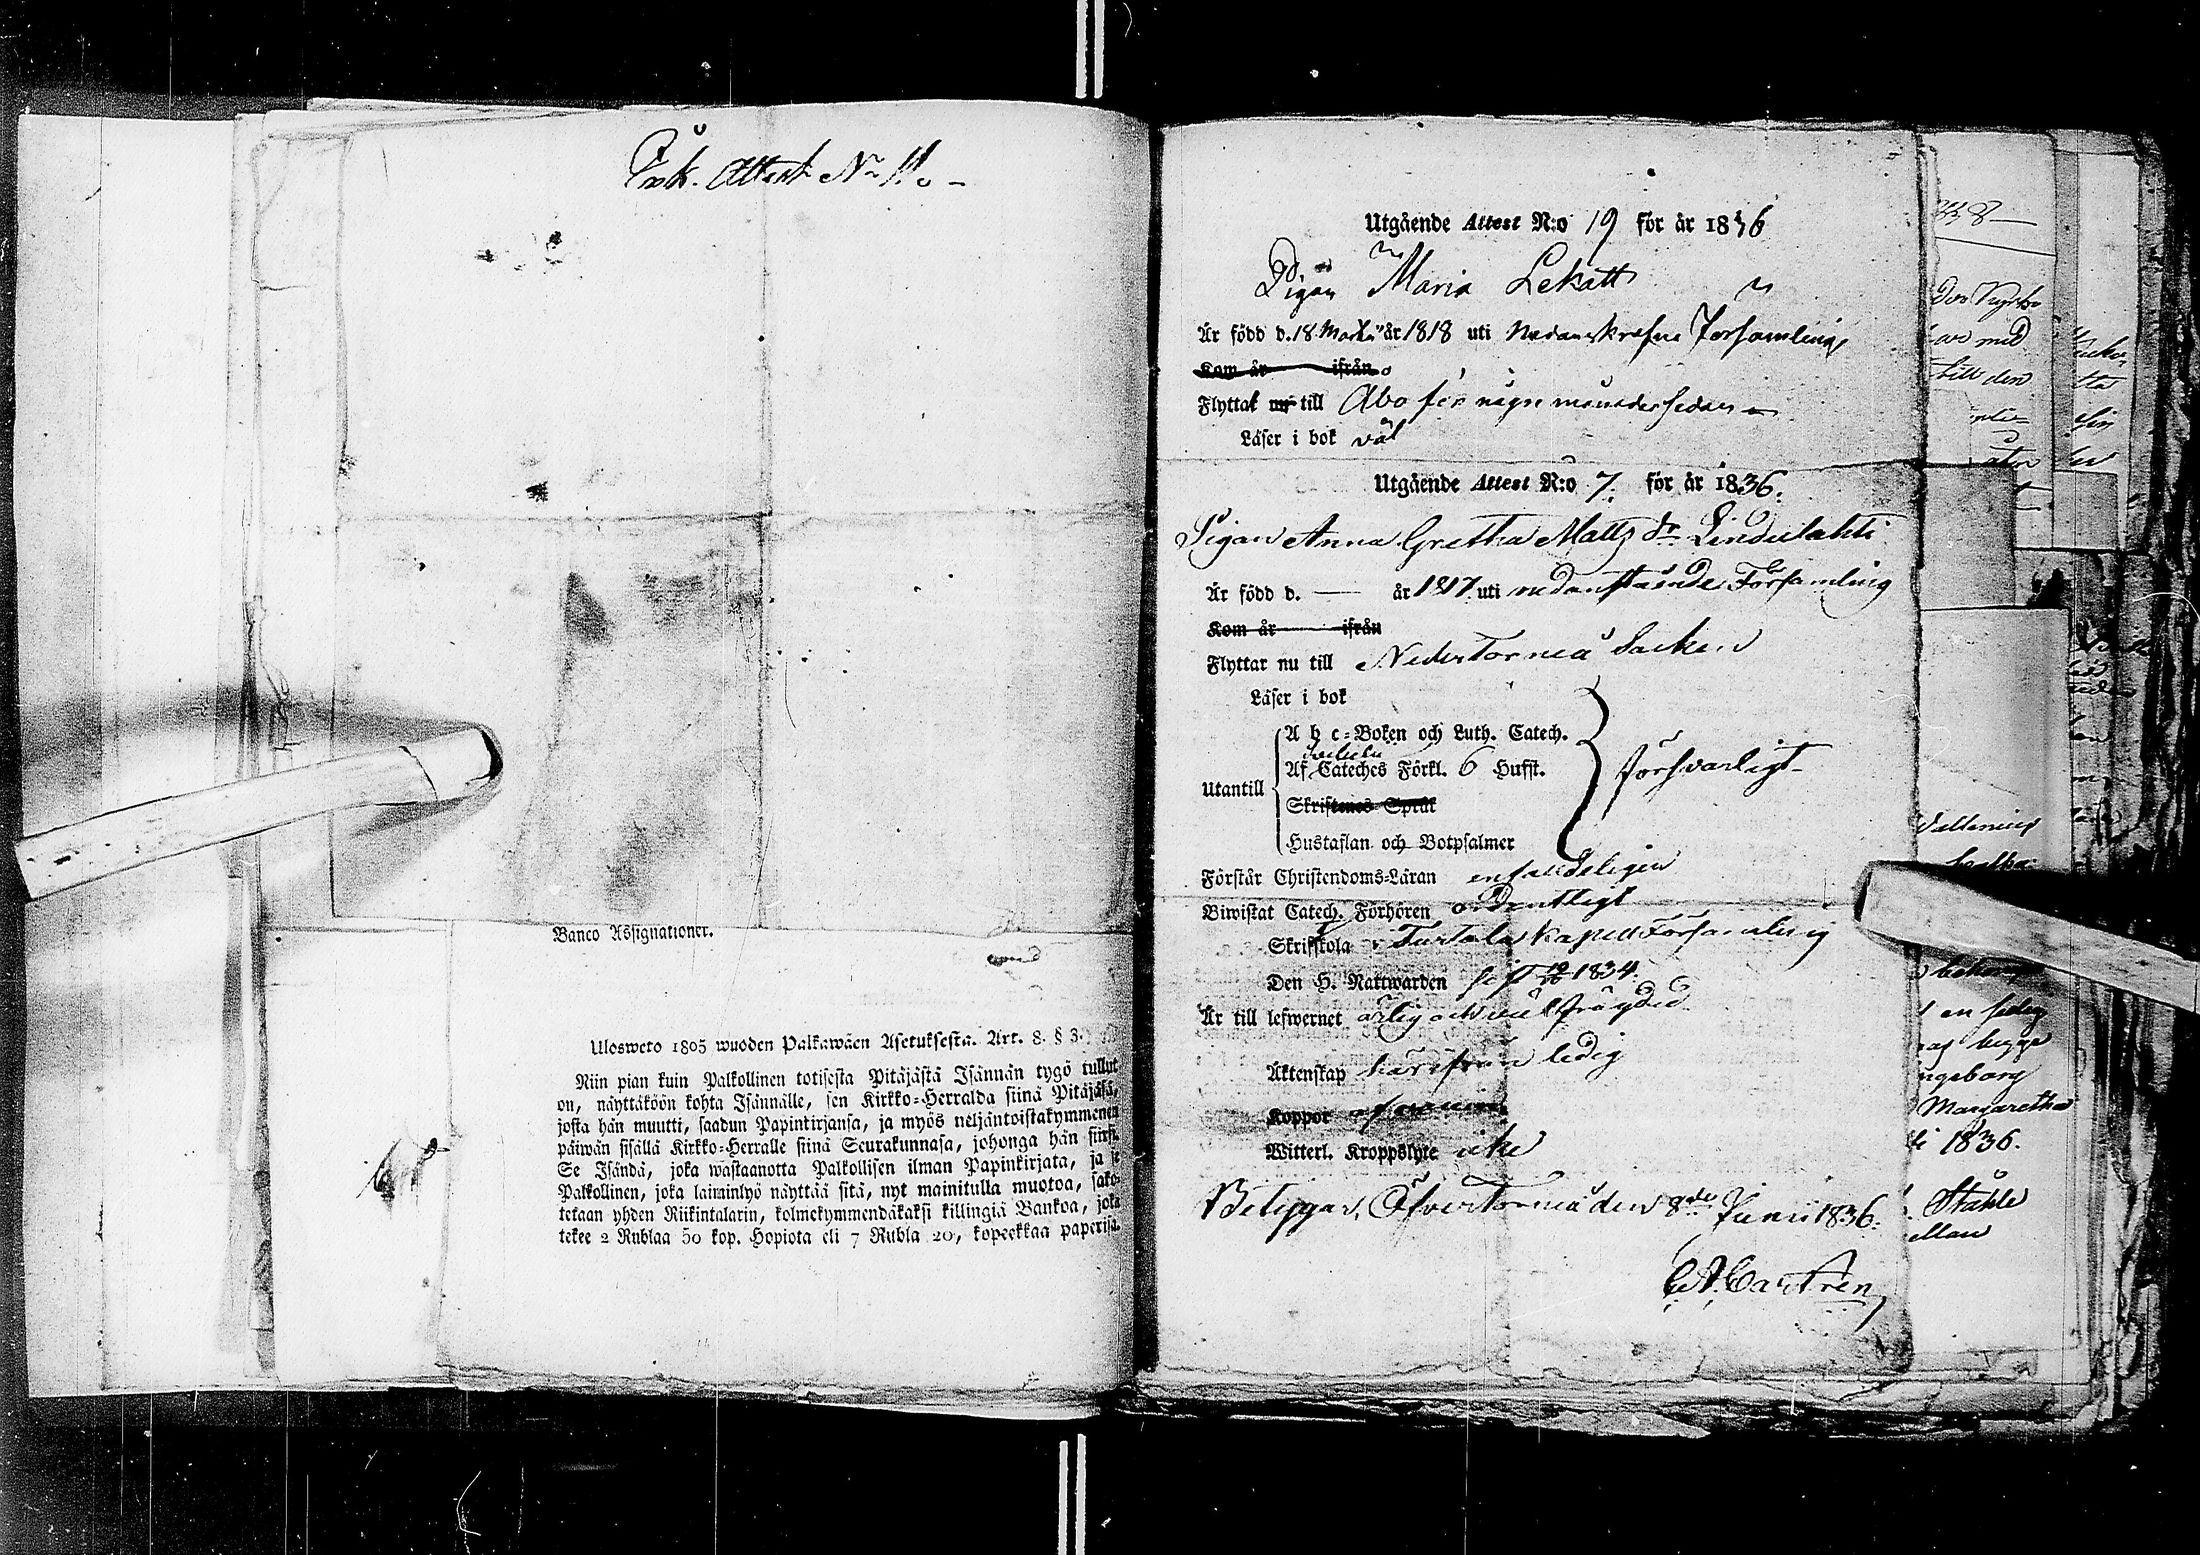 Ink. Attest No 11.
Banco Assignationer.
Ulosweto 1805 wuoden Palkawäen Asetuksesta. Art. 8. § 3.
Niin pian kuin Palkollinen totisesta Pitäjästä Isännän tygö tullut
on, näyttäköön kohta Isännälle, sen Kirkko-Herralda siinä Pitäjäsä,
josta hän muutti, saadun Papinkirjansa, ja myös neljäntoistakymmenen
päiwän sisällä Kirkko-Herralle siinä Seurakunnasa, johonga hän siirsi.
Se Isändä, joka wastaanotta Palkollisen ilman Papinkirjata, ja se
Palkollinen, joka laiminlyö näyttää sitä, nyt mainitulla muotoa, sako-
tetaan yhden Riikintalarin, kolmekymmendäkaksi killingiä Bankoa, joka
tekee 2 Rublaa 50 kop. Hopiota eli 7 Rubla 20, kopeekkaa paperisa.
Utgående Attest N:o 19 för år 1836
Pigan Maria Lekatt
Är född d. 18 Martii år 1818 uti Nedanskrefne Församling
Kom år ifrån
Flyttat nu till Åbo för några månader sedan
Läser i bok väl
Utgående Attest N:o 7. för år 1836.
Pigan Anna Gretha Matts dr Lindulahti
Är född d. — år 1817 uti nedanstående Församling
Kom år ifrån
Flyttar nu till Neder Torneå Socken
Läser i bok
Utantill
A b c-Boken och Luth. Catech.
Af Cateches Förkl. 6 Hufst.
Skriftenes Språk
Hustaflan och Botpsalmer
försvarligt
Förstår Christendoms-Läran enfaldeligen
Biwistat Catech. Förhören ordentligt
Skriftskola i Turtola Kapell Församling
Den H. Nattwarden sist 19/10 1834.
Är till lefwernet ärlig och väl frägdad
Äktenskap härifrån ledig
Koppor
Witterl. Kroppslyte icke
Betygar, Öfver Torneå den 8de Junii 1836.
C. A. Castrén
den
med
till den
Wallenius
en
begge
Ingeborg
Margaretha
1836.
Ståhle